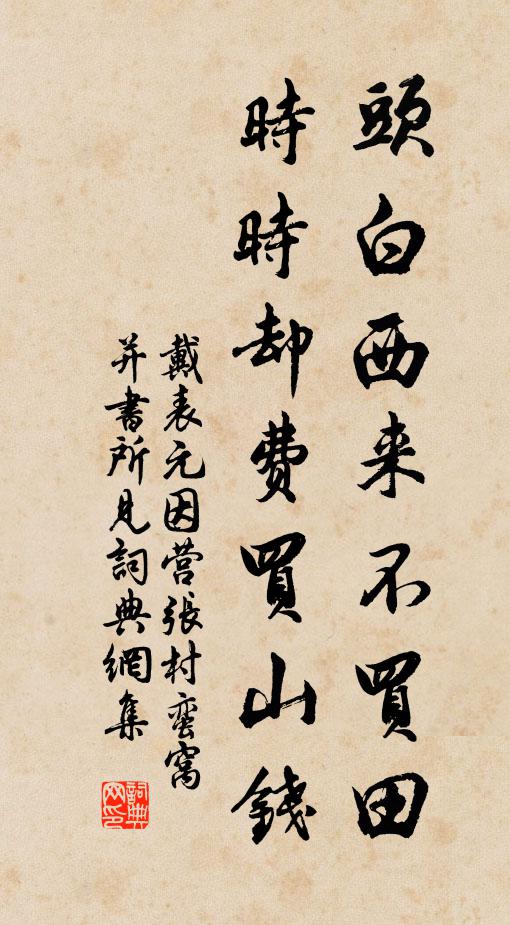 頭白西来不買田
時時却費買山錢
戴表元因营張村蛮窩
并書所見詞典網集
詞典网印